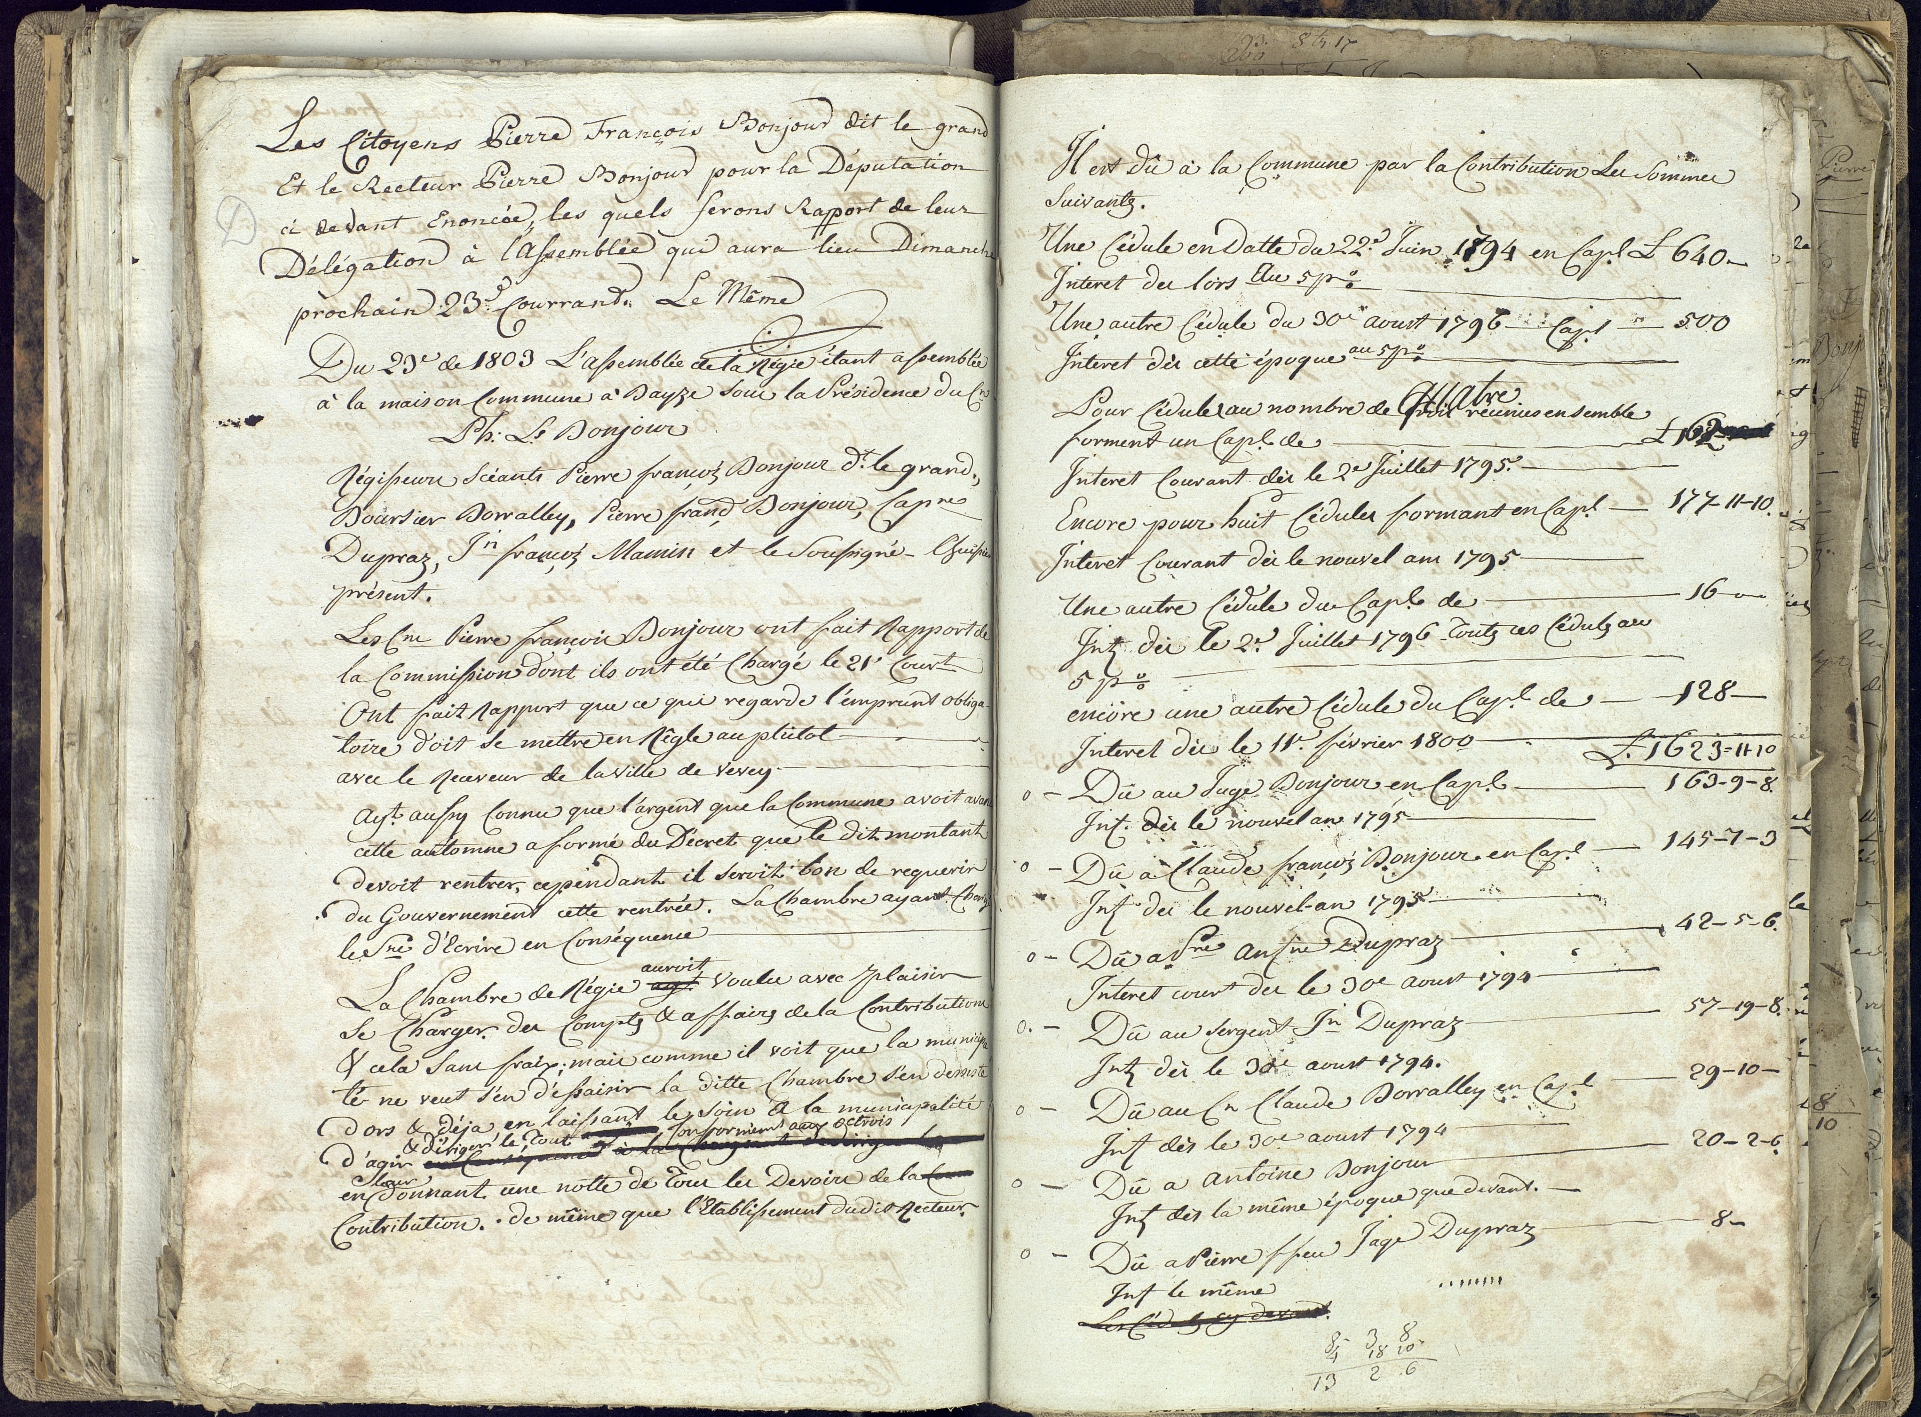 Les Citoyens Pierre François Bonjour dit le grand
Et le Recteur Pierre Bonjour pour la Députation
ci devant Enoncée, les quels ferons Rapport de leur
Délégation à l'Assemblée qui aura lieu Dimanche
prochain 23e Courrand. Le Même
Du 23e de 1803 L'assemblée de la Régie étant assemblée
à la maison Commune à Bayze sous la Présidence du Cn
Ph: Ls Bonjour
Régisseurs Scéants Pierre françois Bonjour dt. le grand,
Boursier Borralley, Pierre frand Bonjour, Capne
Dupraz, Jn françois Mamin et le Soussigné - l'huissier
présent.
Les Cns Pierre françois Bonjour ont fait Rapport de
la Commission dont ils ont été Chargé le 21e Court
Ont fait Rapport que ce qui regarde l'emprunt obliga-
toire doit se mettre en Règle au plutot
avec le Receveur de la ville de Vevey
Ayt. aussy Connu que l'argent que la Commune avoit avan
cette automne a formé du Décret que le dit montant
devoit rentrer, cependant il seroit bon de requerir
du Gouvernement cette rentrée. La Chambre ayant Charg
le Sre d'Ecrire en Conséquence
auroit
La Chambre de Régie ayt. voulu avec plaisir
se Charger des Compts & affaires de la Contributions
& cela sans fraix; mais comme il voit que la municipa
té ne veut s'en déssaisir la ditte Chambre s'en demiste
d'ors & déja en laissant le soin à la municipalité
& d'ériger le Tout conformement aux octrois
d'agir
en donnant une notte de Tous les Devoirs de la
Contribution. de même que l'Etablissement dudit Recteur.
D
Il est dû à la Commune par la Contribution Les Sommes
Suivants.
Une Cédule en Datte du 22e Juin 1794 en Capl £ 640 -
Interet des lors au 5 p%
Une autre Cédule du 30e aoust 1796 Capl 500
Interet dès cette époque au 5 p%
quatre
Pour Cédules au nombre de trois reunies ensemble
forment un Capl. de £ 162
Interet Courant dès le 2e Juillet 1795.
Encore pour huit Cédules formant en Capl. 177-11-10.
Interet Courant dès le nouvel an 1795
Une autre Cédule du Capl. de 16
Int dès le 2e Juillet 1796 - Touts ces Céduls au
5 p%
encore une autre Cédule du Capl. de 128 -
Interet dès le 11e. février 1800 £. 1623-11-10
o - Dû au Juge Bonjour en Capl. 163-9-8.
Int. dès le nouvel an 1795
o - Dû à Claude françois Bonjour en Capl 145-7-3
Int des le nouvel-an 1795
o - Dû a Dupraz 42-5-6.
Interet court des le 30e aoust 1794
o. - Dû au sergent Jn Dupraz 57-19-8.
Int dès le 30e aoust 1794.
o - Dû au Cn Claude Borralley en Capl 29-10-
Int dès le 30e aoust 1794
o - Dû a Antoine Bonjour 20-2-6
Int dès la même époque que devant.
o - Dû a Pierre ffeu Jage Dupraz 8 -
Int le même
Les Céduls cy devant.
8 3 8
4 18 10
13 2 6